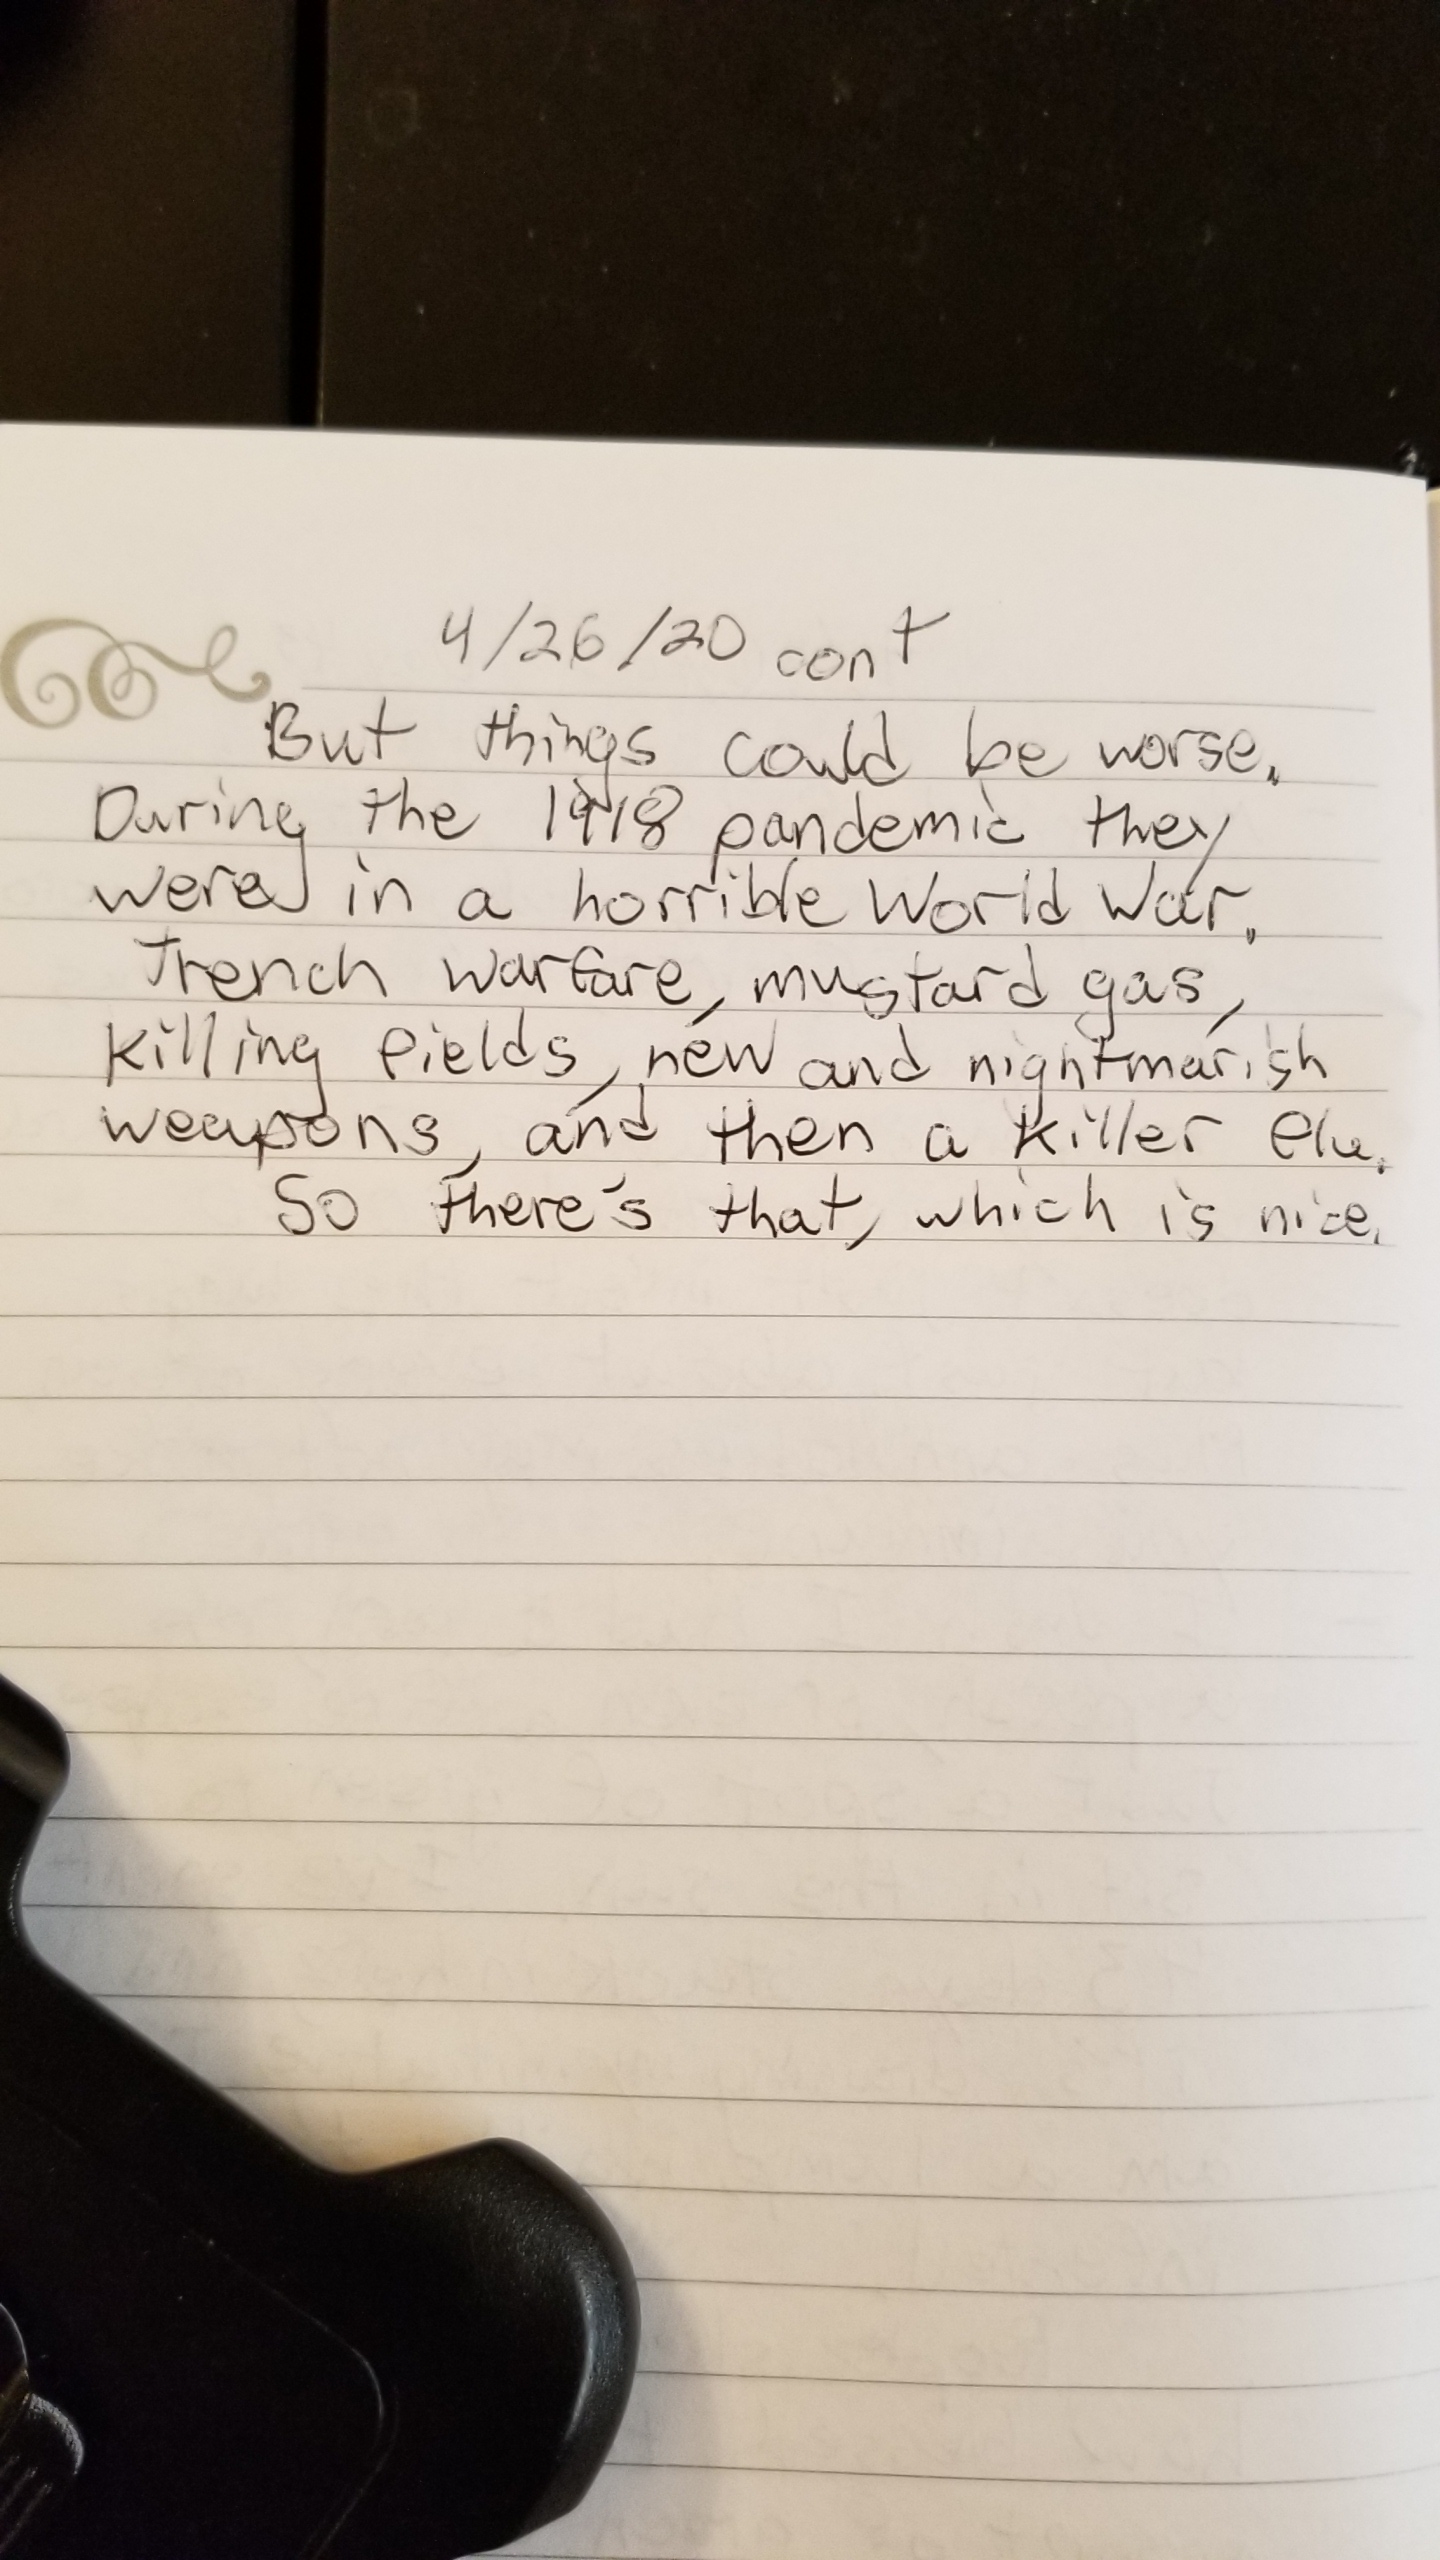 4/26/20 cont
But things could be worse.
During the 1918 pandemic they
were in a horrible World War.
Trench warfare, mustard gas,
killing fields, new and nightmarish
weapons, and then a killer flu.
So there's that, which is nice.